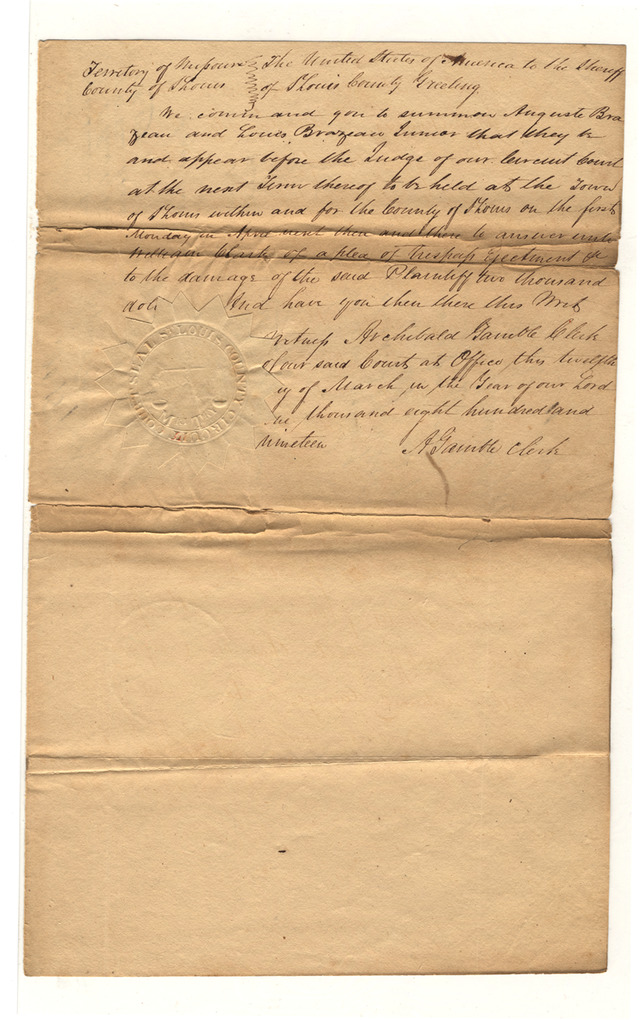 Territory of Missouri The United States of America to the Sheriff
County of St Louis of St Louis County Greeting
We command you to summon Auguste Bra
zeau and Louis Brazeau Junior that they be
and appear before the Judge of our Circuit Court
at the next Term thereof to be held at the Town
of St Louis within and for the County of St Louis on the first
Monday in April next then and there to answer unto
William Clark of a plea of trespass Ejectment &c
to the damage of the said Plaintiff two thousand
dol And have you then there this Writ
Witness Archibald Gamble Clerk
of our said Court at Office this twelfth
ay of March in the Year of our Lord
ne thousand eight hundred and
nineteen A Gamble Clerk
SEAL ST LOUIS COUNTY CIRCUIT COURT